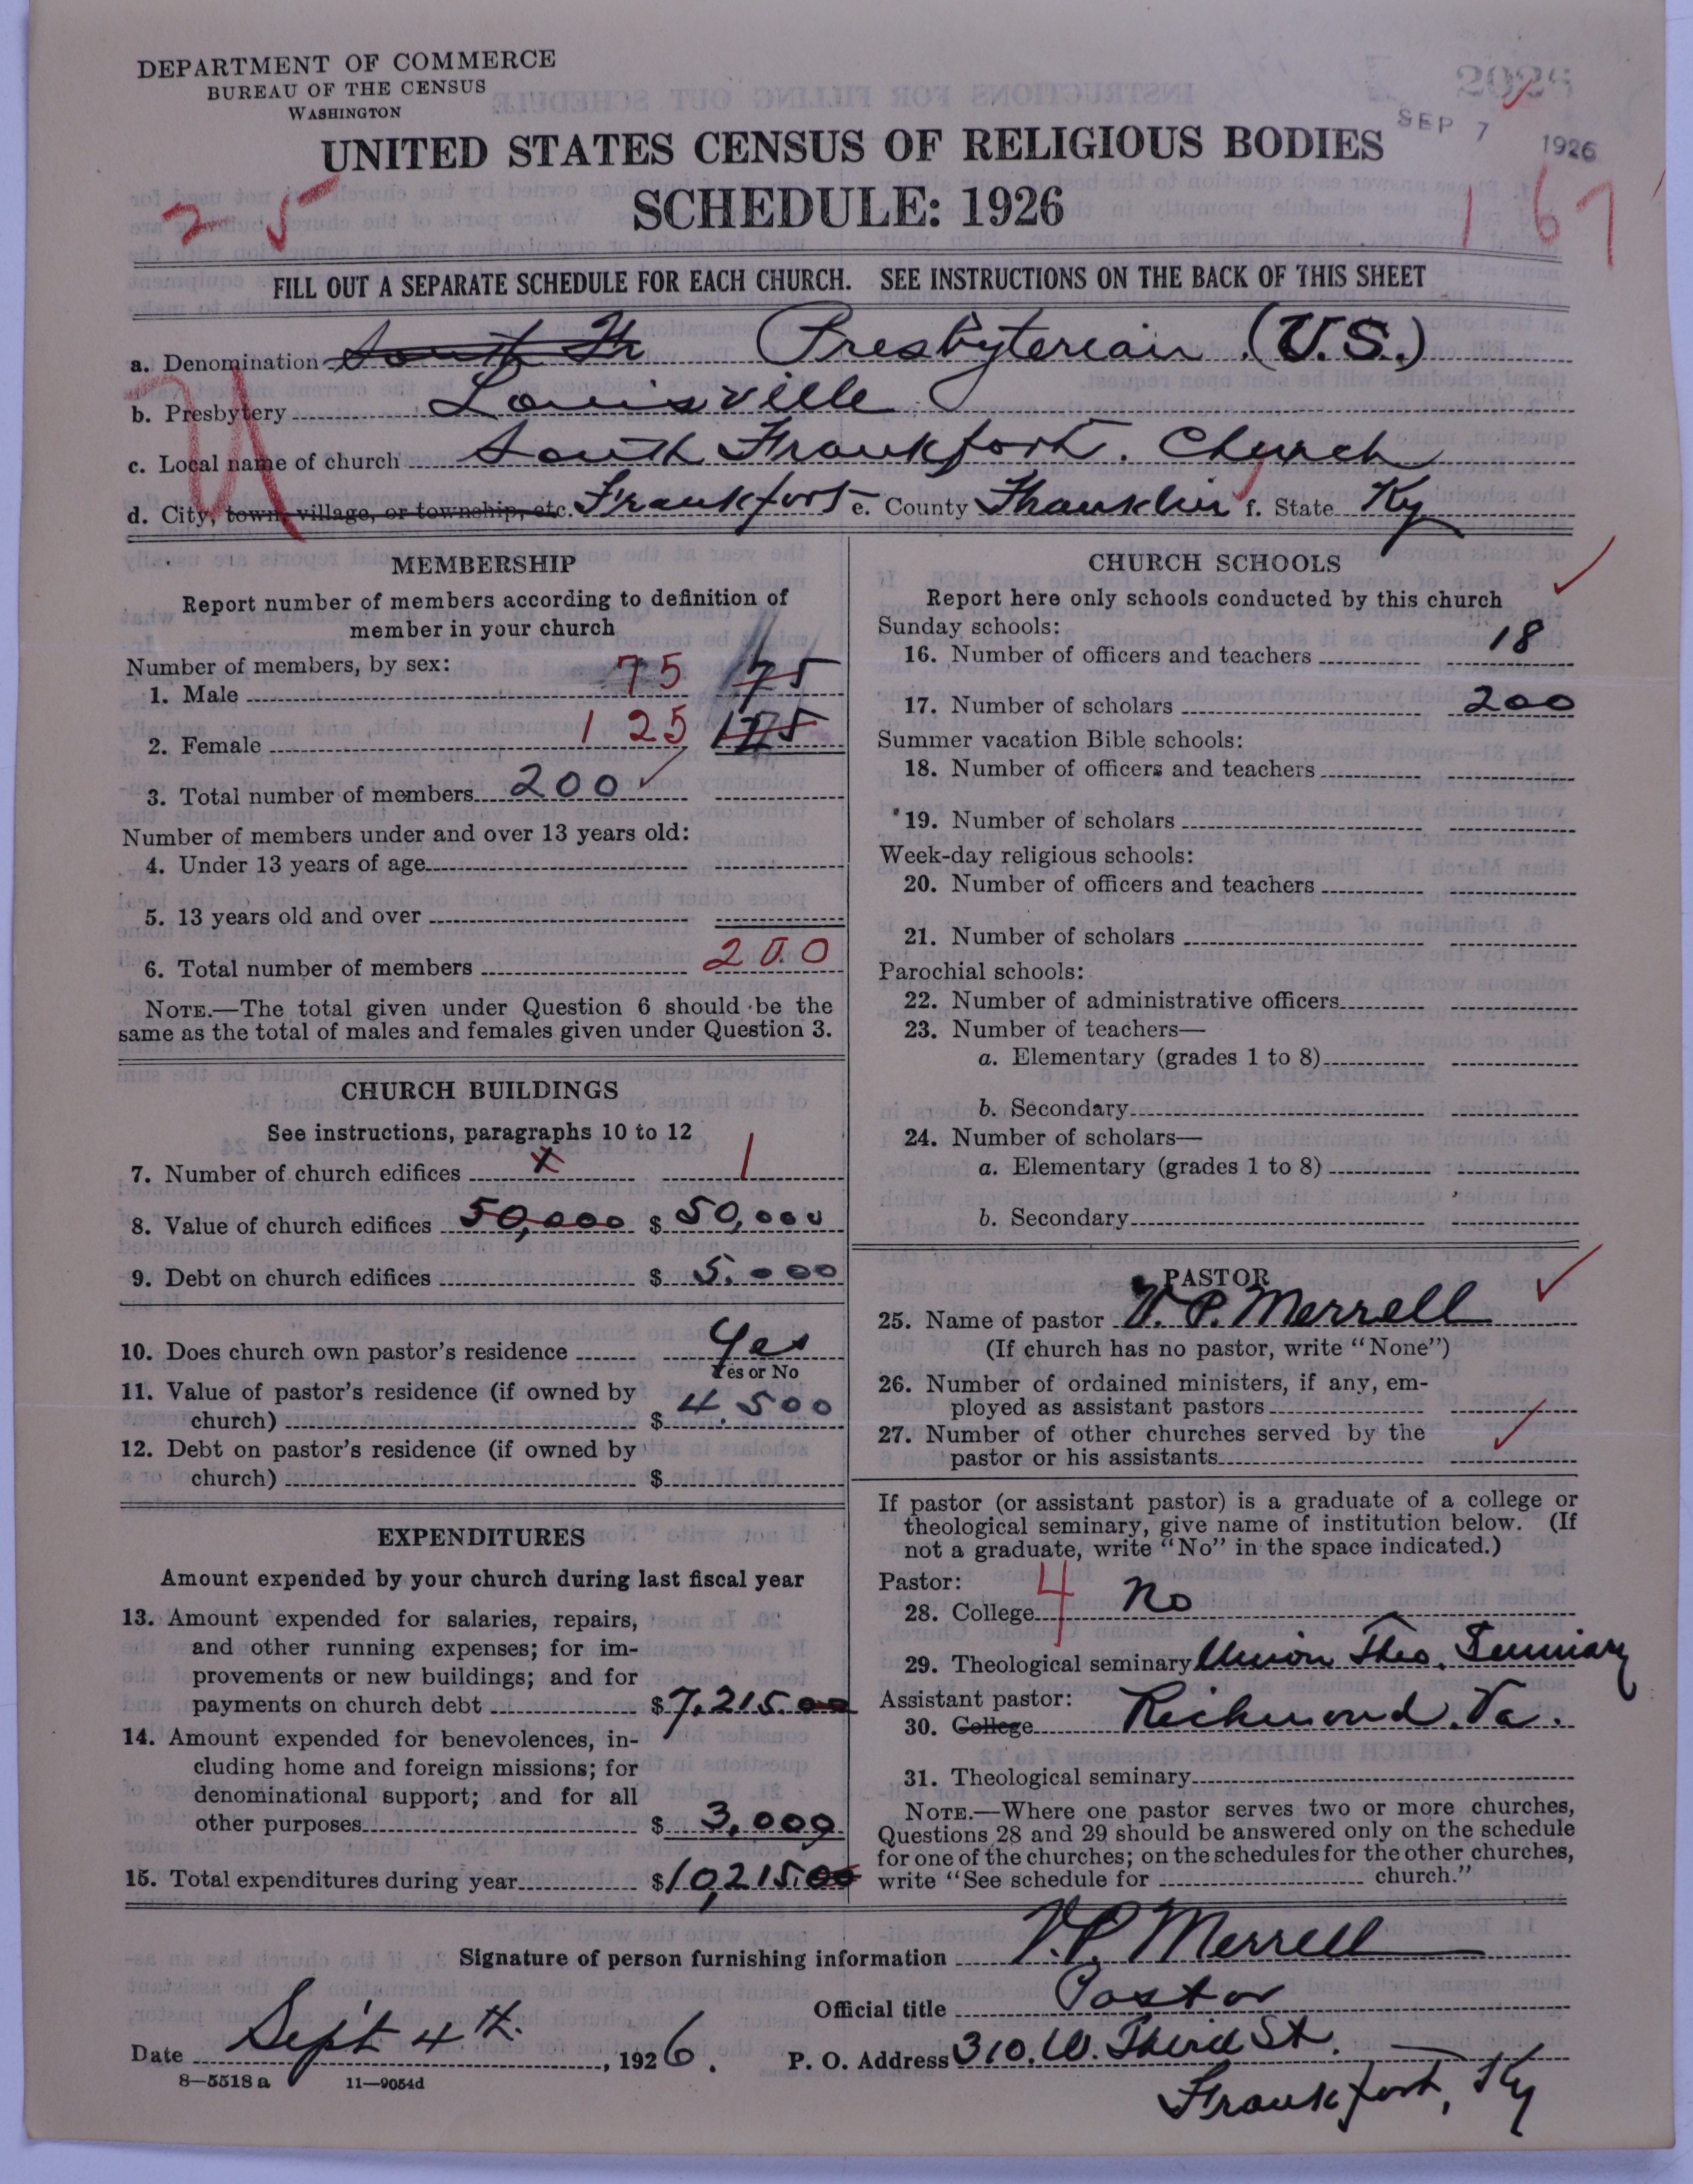 DEPARTMENT OF COMMERCE
BUREAU OF THE CENSUS
WASHINGTON
SEP 7 1926
UNITED STATES CENSUS OF RELIGIOUS BODIES
SCHEDULE: 1926
2 5
167
FILL OUT A SEPARATE SCHEDULE FOR EACH CHURCH. SEE INSTRUCTIONS ON THE BACK OF THIS SHEET
a. Denomination South Fr Presbyterian (U.S.)
b. Presbytery Louisville
c. Local name of church South Frankfort. Church
d. City, town, village, or township, etc. Frankfort e. County Franklin f. State Ky
MEMBERSHIP
Report number of members according to definition of
member in your church
Number of members, by sex:
1. Male 75 175
2. Female 125 125
3. Total number of members 200
Number of members under and over 13 years old:
4. Under 13 years of age
5. 13 years old and over
6. Total number of members 200
NOTE.—The total given under Question 6 should be the
same as the total of males and females given under Question 3.
CHURCH BUILDINGS
See instructions, paragraphs 10 to 12
7. Number of church edifices x 1
8. Value of church edifices 50,000 $ 50,000
9. Debt on church edifices $ 5.000
10. Does church own pastor's residence Yes
Yes or No
11. Value of pastor's residence (if owned by
church) $ 4.500
12. Debt on pastor's residence (if owned by
church) $
EXPENDITURES
Amount expended by your church during last fiscal year
13. Amount expended for salaries, repairs,
and other running expenses; for im-
provements or new buildings; and for
payments on church debt $ 7,215.00
14. Amount expended for benevolences, in-
cluding home and foreign missions; for
denominational support; and for all
other purposes $ 3,000
15. Total expenditures during year $ 10,215.00
CHURCH SCHOOLS
Report here only schools conducted by this church
Sunday schools:
16. Number of officers and teachers 18
17. Number of scholars 200
Summer vacation Bible schools:
18. Number of officers and teachers
19. Number of scholars
Week-day religious schools:
20. Number of officers and teachers
21. Number of scholars
Parochial schools:
22. Number of administrative officers
23. Number of teachers—
a. Elementary (grades 1 to 8)
b. Secondary
24. Number of scholars—
a. Elementary (grades 1 to 8)
b. Secondary
PASTOR
25. Name of pastor V. P. Merrell
(If church has no pastor, write "None")
26. Number of ordained ministers, if any, em-
ployed as assistant pastors
27. Number of other churches served by the
pastor or his assistants
If pastor (or assistant pastor) is a graduate of a college or
theological seminary, give name of institution below. (If
not a graduate, write "No" in the space indicated.)
Pastor: 4
28. College No
29. Theological seminary Union Theo. Seminary
Assistant pastor:
30. College Richmond. Va.
31. Theological seminary
NOTE.—Where one pastor serves two or more churches,
Questions 28 and 29 should be answered only on the schedule
for one of the churches; on the schedules for the other churches,
write "See schedule for church."
Signature of person furnishing information V.P. Merrell
Official title Pastor
Date Sept 4th. , 1926. P. O. Address 310. W. Third St.
Frankfort, Ky
8—5518 a 11—9054d